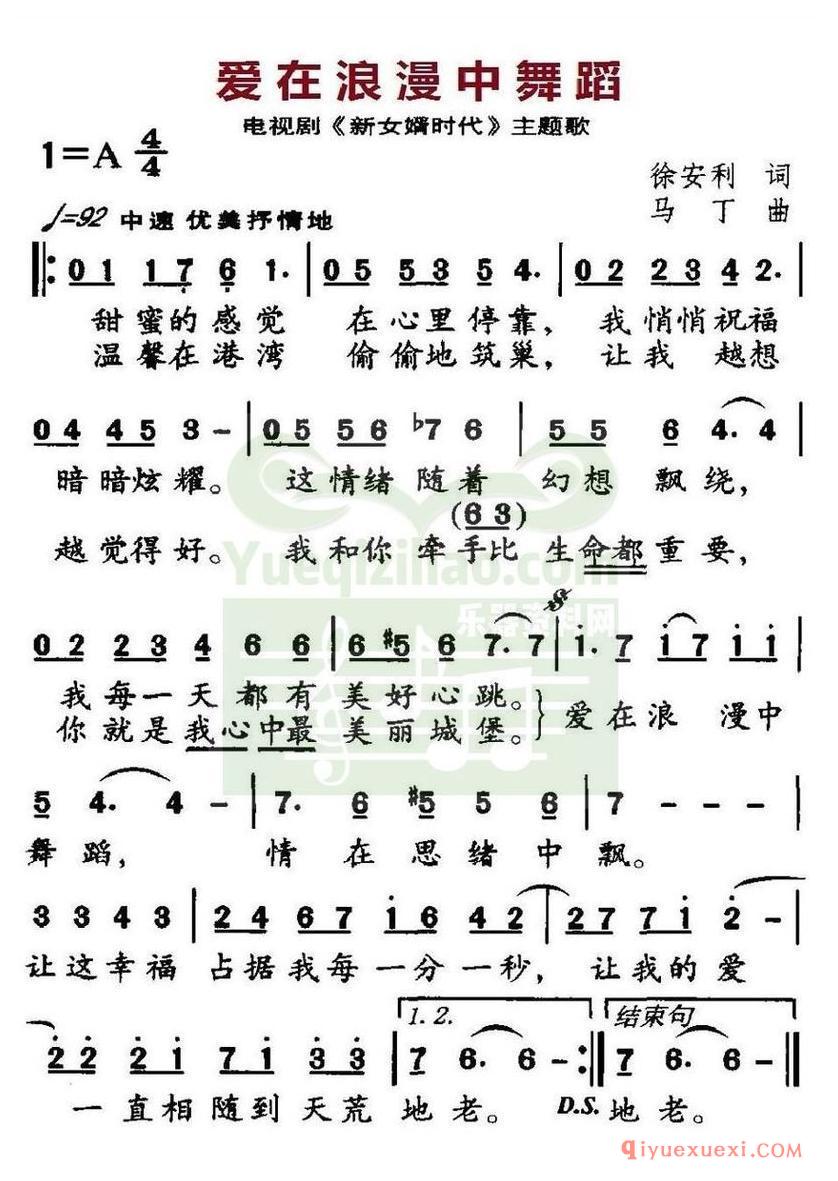 爱在浪漫中舞蹈
电视剧《新女婿时代》主题歌
1=A 4/4
徐安利 词
♩=92 中速 优美抒情地
马丁 曲
0 1 1 7 6 1· | 0 5 5 5 3 5 4· | 0 2 2 3 4 2·
甜蜜的感觉 在心里停靠， 我悄悄祝福
温馨在港湾 偷偷地筑巢， 让我 越想
0 4 4 5 3 – | 0 5 5 6 ♭7 6 | 5 5 6 4· 4
暗暗炫耀。 这情绪随着 幻想 飘绕，
(6 3)
越觉得好。 我和你 牵手比 生命都重要，
Yueqiziliao.com
乐器资料网
0 2 2 3 4 6 6 | 6 ♯5 6 7· 7 | 1· 7 1 7 1 1
我每一天都有 美好心跳。
你就是我心中最 美丽城堡。} 爱在浪 漫中
5 4· 4 – | 7· 6 ♯5 5 6 | 7 – – –
舞蹈， 情在思绪中飘。
3 3 4 3 | 2 4 6 7 1 6 4 2 | 2 7 7 1 2 –
让这幸福 占据我每一分一秒， 让我的爱
1.2. 结束句
2 2 2 1 7 1 3 3 | 7 6· 6 – :| 7 6· 6 – ||
一直相随到天荒 地老。 D.S. 地老。
qiyuexuexi.com